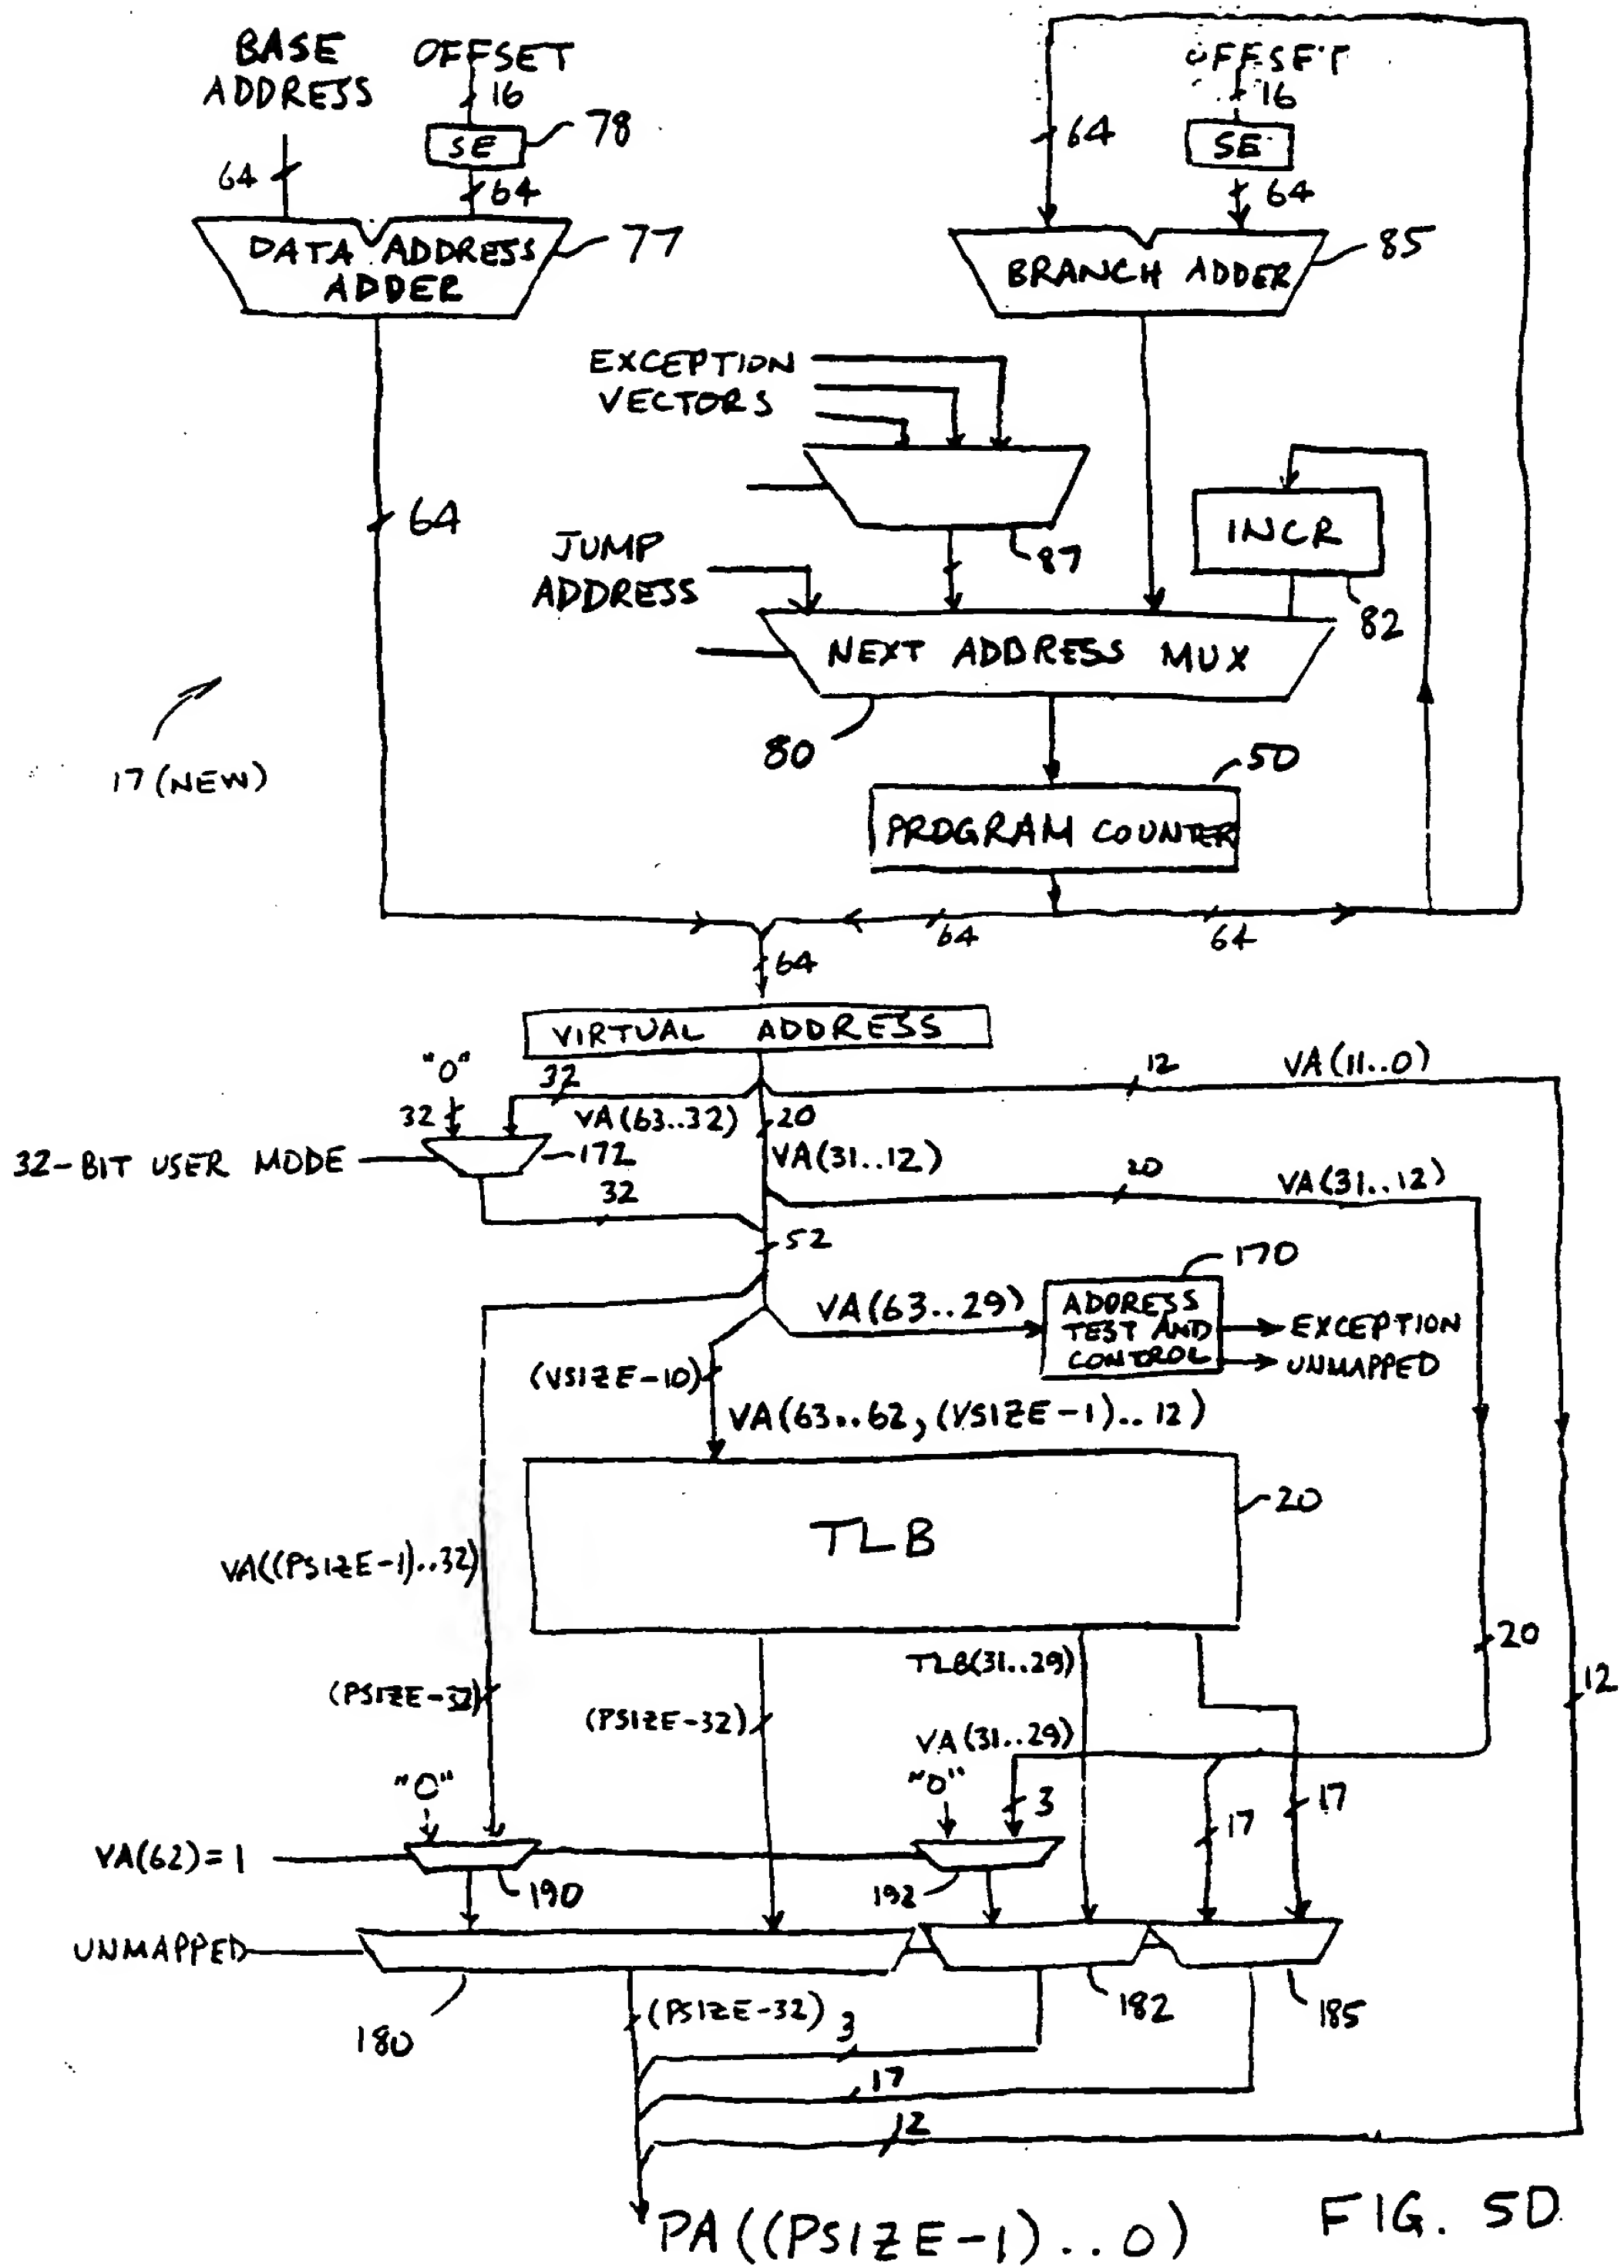 BASE
ADDRESS
OFFSET
16
SE
78
64
64
DATA ADDRESS
ADDER
77
64
OFFSET
16
SE
64
64
BRANCH ADDER
85
EXCEPTION
VECTORS
87
INCR
82
JUMP
ADDRESS
NEXT ADDRESS MUX
80
17 (NEW)
50
PROGRAM COUNTER
64
64
64
VIRTUAL ADDRESS
"0"
32
32
VA(63..32)
20
VA(31..12)
12
VA(11..0)
32-BIT USER MODE
172
32
20
VA(31..12)
52
170
VA(63..29)
ADDRESS
TEST AND
CONTROL
EXCEPTION
UNMAPPED
(VSIZE-10)
VA(63..62, (VSIZE-1)..12)
TLB
20
VA((PSIZE-1)..32)
20
12
TLB(31..29)
(PSIZE-32)
(PSIZE-32)
VA(31..29)
"0"
"0"
3
17
17
VA(62)=1
190
192
UNMAPPED
180
182
185
(PSIZE-32)
3
17
12
PA((PSIZE-1)..0)
FIG. 5D